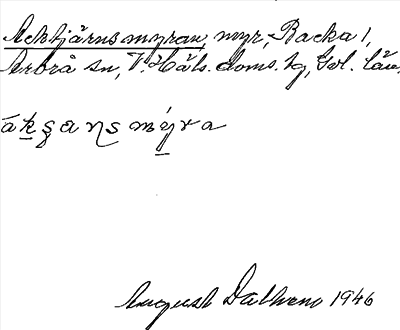 Ackkjärnsmyran, myr, Backa 1,
Arbrå sn, V. Häls. doms. hg, Gvl. län,
ák̲s̨aŋs mý̲ra
August Dalhem 1946